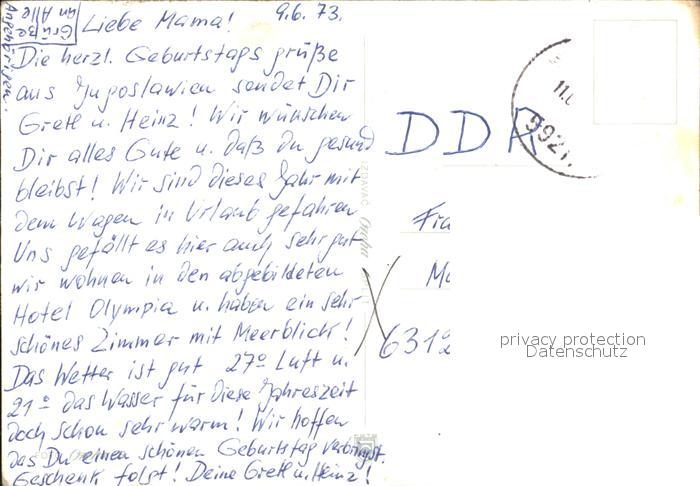 Grüße
an Alle
Angehörigen.
Liebe Mama! 9.6.73.
Die herzl. Geburtstags grüße
aus Jugoslawien sendet Dir
Gretl u. Heinz! Wir wünschen
Dir alles Gute u. daß du gesund
bleibst! Wir sind dieses Jahr mit
dem Wagen in Urlaub gefahren
Uns gefällt es hier auch sehr gut
wir wohnen in den abgebildeten
Hotel Olympia u. haben ein sehr
schönes Zimmer mit Meerblick!
Das Wetter ist gut 27º Luft u.
21º das Wasser für diese Jahreszeit
doch schon sehr warm! Wir hoffen
das Du einen schönen Geburtstag verbringst.
Geschenk folgt! Deine Gretl u. Heinz!
DDR
Fra
M
631
privacy protection
Datenschutz